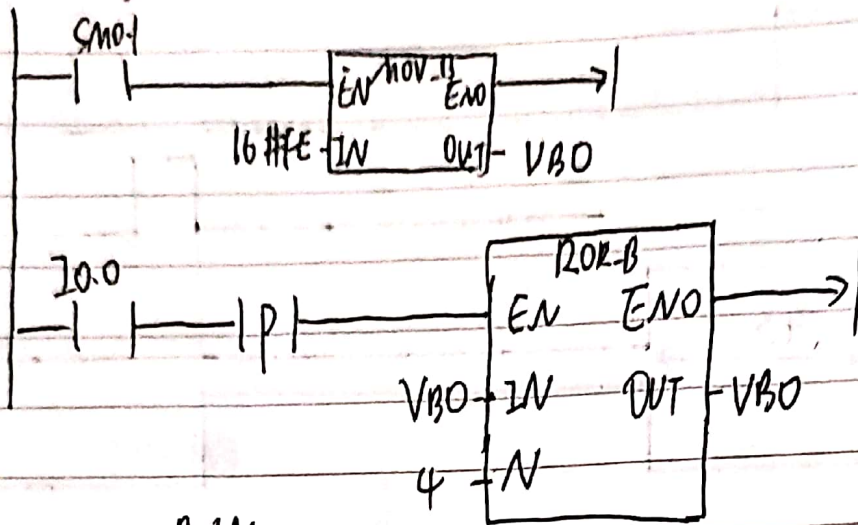 SM0.1
MOV_B
EN ENO
16#FE IN OUT VB0
I0.0
P
ROR-B
EN ENO
VB0 IN OUT VB0
4 N